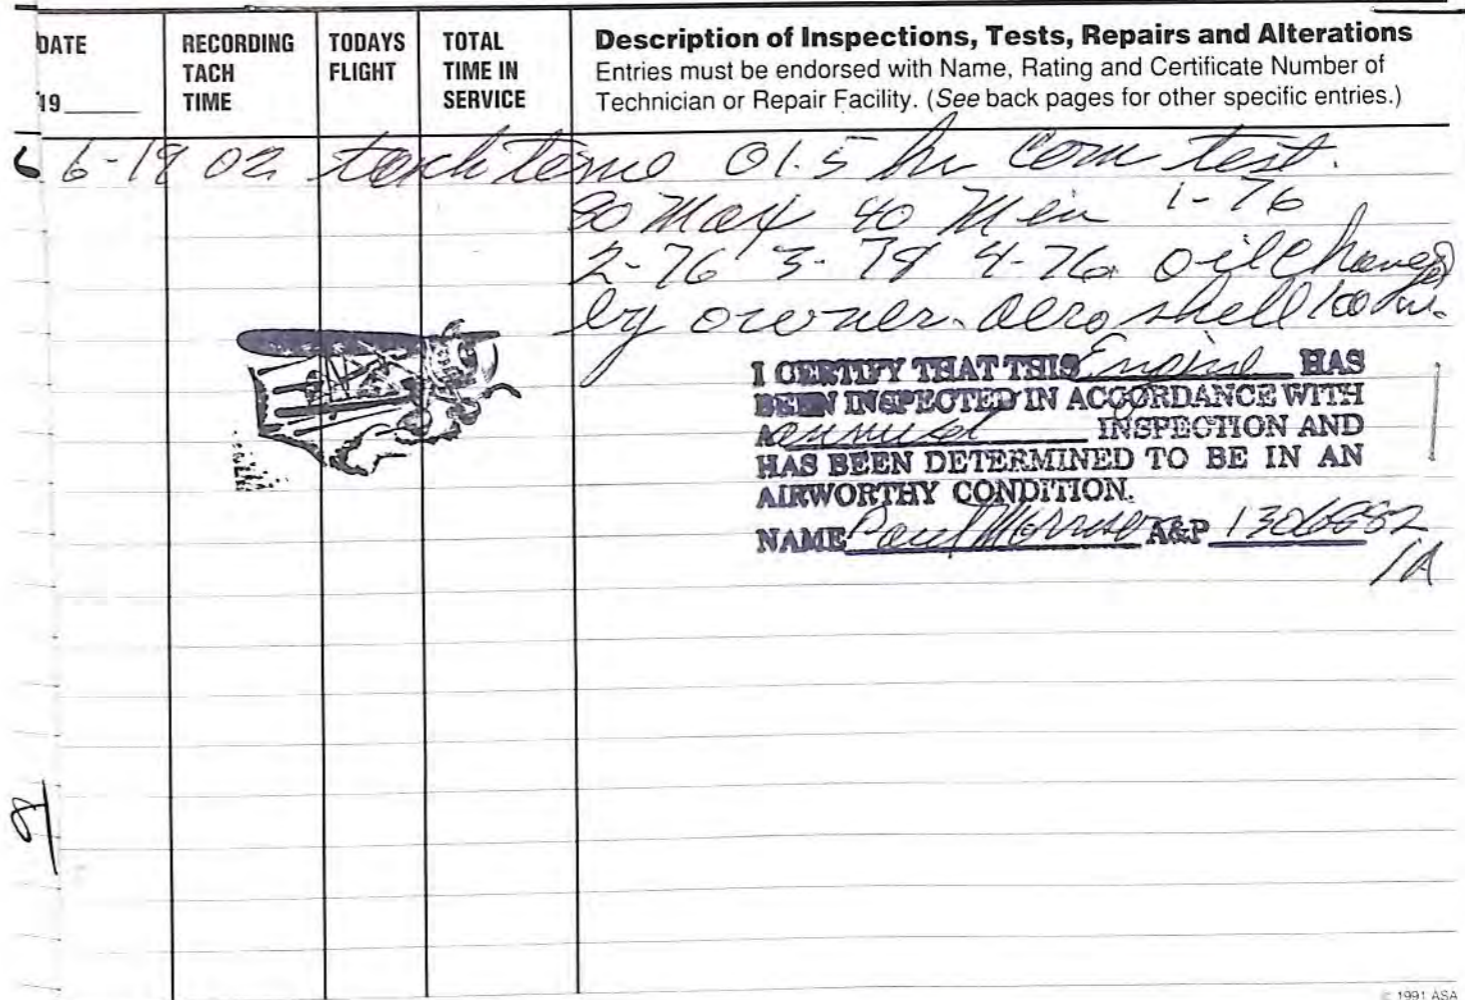 DATE
19
RECORDING
TACH
TIME
TODAYS
FLIGHT
TOTAL
TIME IN
SERVICE
Description of Inspections, Tests, Repairs and Alterations
Entries must be endorsed with Name, Rating and Certificate Number of
Technician or Repair Facility. (See back pages for other specific entries.)
6-19 02 tach time 01.5 hr Com test.
80 Max 40 Min 1-76
2-76 3-78 4-76 oil changed
by owner. aero shell 100
I CERTIFY THAT THIS Engine HAS
BEEN INSPECTED IN ACCORDANCE WITH
A annual INSPECTION AND
HAS BEEN DETERMINED TO BE IN AN
AIRWORTHY CONDITION.
NAME Paul A&P 1306882
IA
© 1991 ASA